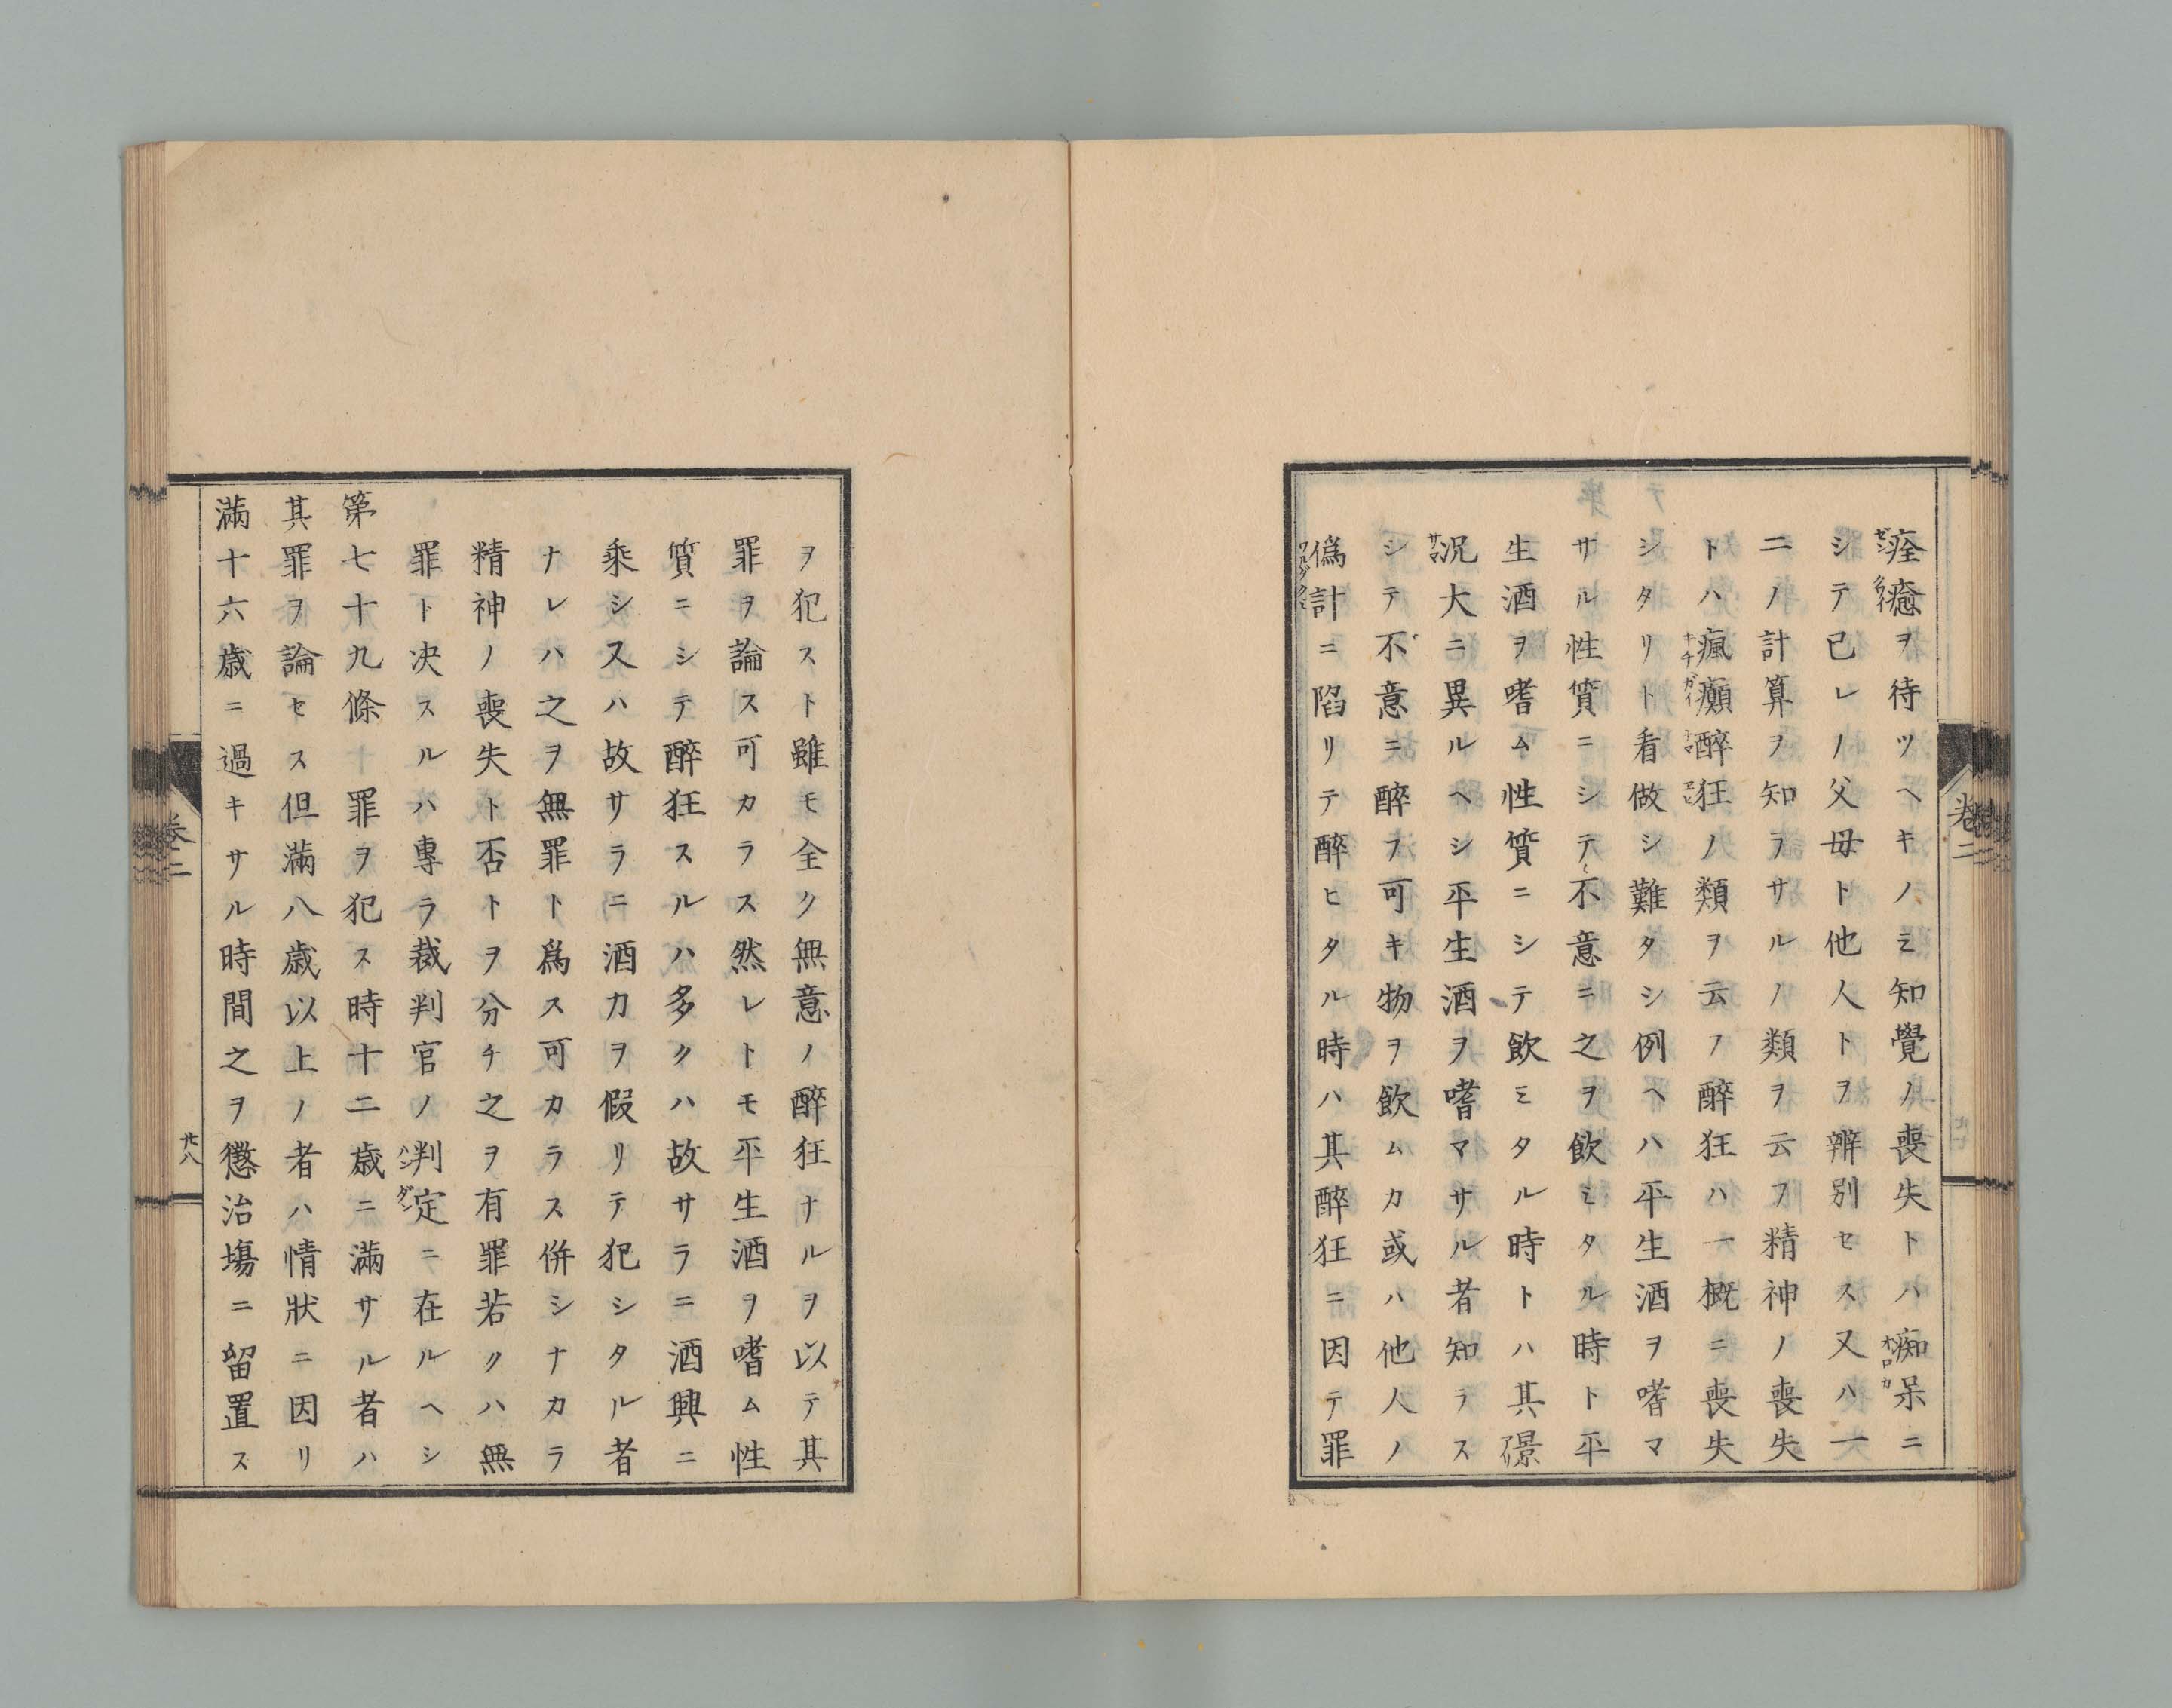 痊癒ヲ待ツヘキノミ知覺ノ喪失トハ痴呆ニ
シテ已レノ父母ト他人トヲ辨別セス又ハ一
二ノ計算ヲ知ヲサルノ類ヲ云フ精神ノ喪失
トハ瘋癲醉狂ノ類ヲ云フ醉狂ハ一概ニ喪失
シタリト看做シ難タシ例ヘハ平生酒ヲ嗜マ
サル性質ニシテ不意ニ之ヲ飲ミタル時ト平
生酒ヲ嗜ム性質ニシテ飲ミタル時トハ其景
況大ニ異ルヘシ平生酒ヲ嗜マサル者知ラス
シテ不意ニ醉フ可キ物ヲ飲ムカ或ハ他人ノ
僞計ニ陷リテ醉ヒタル時ハ其醉狂ニ因テ罪
卷二
ヲ犯スト雖モ全ク無意ノ醉狂ナルヲ以テ其
罪ヲ論ス可カラス然レトモ平生酒ヲ嗜ム性
質ニシテ醉狂スルハ多クハ故サラニ酒興ニ
乘シ又ハ故サラニ酒力ヲ假リテ犯シタル者
ナレハ之ヲ無罪ト爲ス可カラス併シナカラ
精神ノ喪失ト否トヲ分チ之ヲ有罪若クハ無
罪ト決スルハ專ラ裁判官ノ判定ニ在ルヘシ
第七十九條 罪ヲ犯ス時十二歳ニ滿サル者ハ
其罪ヲ論セス但滿八歳以上ノ者ハ情狀ニ因リ
滿十六歳ニ過キサル時間之ヲ懲治塲ニ留置ス
卷二
廿八